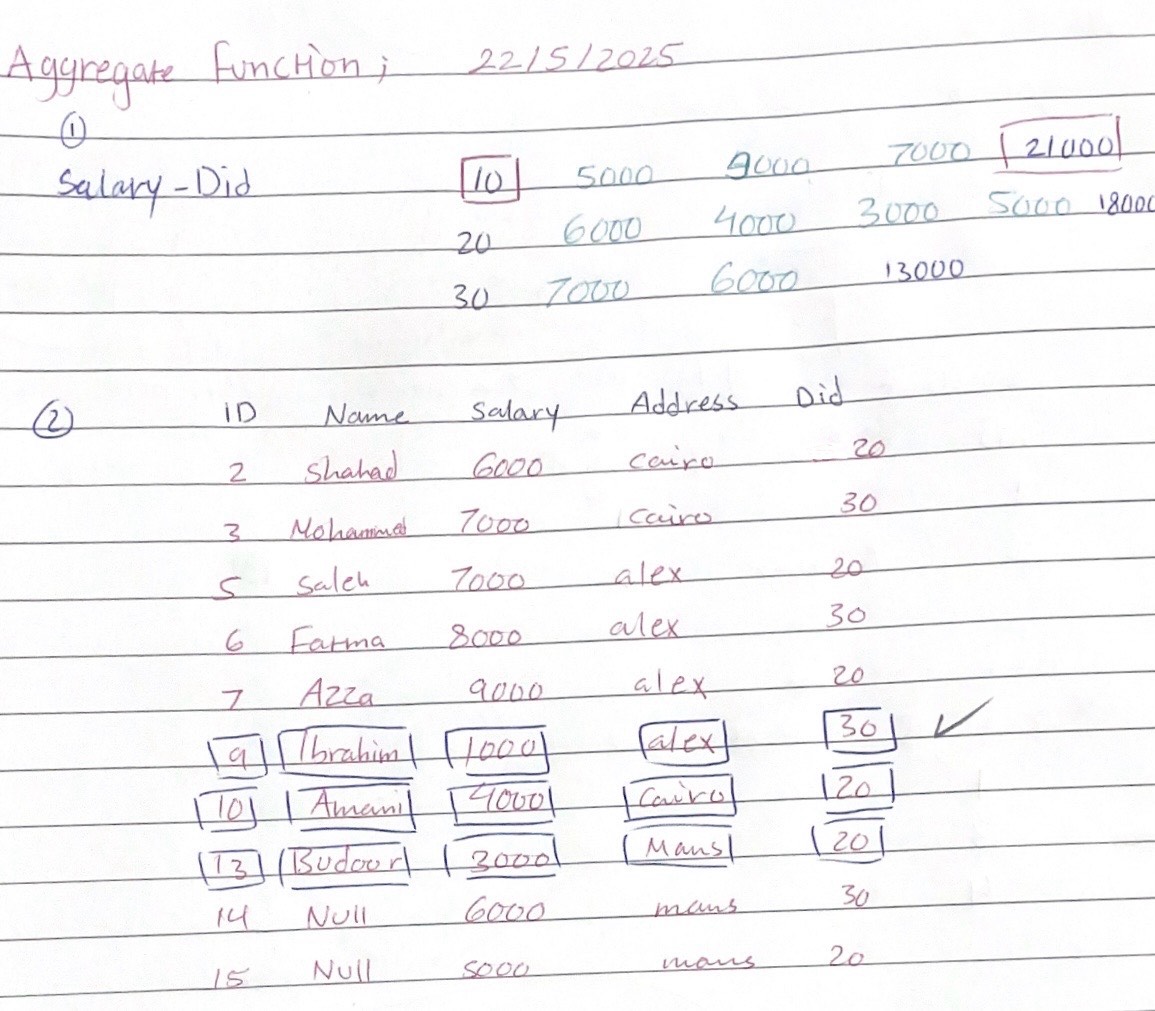 Aggregate Function; 22/5/2025
①
Salary-Did 10 5000 9000 7000 21000
20 6000 4000 3000 5000 18000
30 7000 6000 13000
② ID Name Salary Address Did
2 Shahad 6000 cairo 20
3 Mohammed 7000 cairo 30
5 Saleh 7000 alex 20
6 Fatma 8000 alex 30
7 Azza 9000 alex 20
9 Ibrahim 1000 alex 30 ✓
10 Amani 4000 Cairo 20
13 Budoor 3000 Mans 20
14 Null 6000 mans 30
15 Null 5000 mans 20